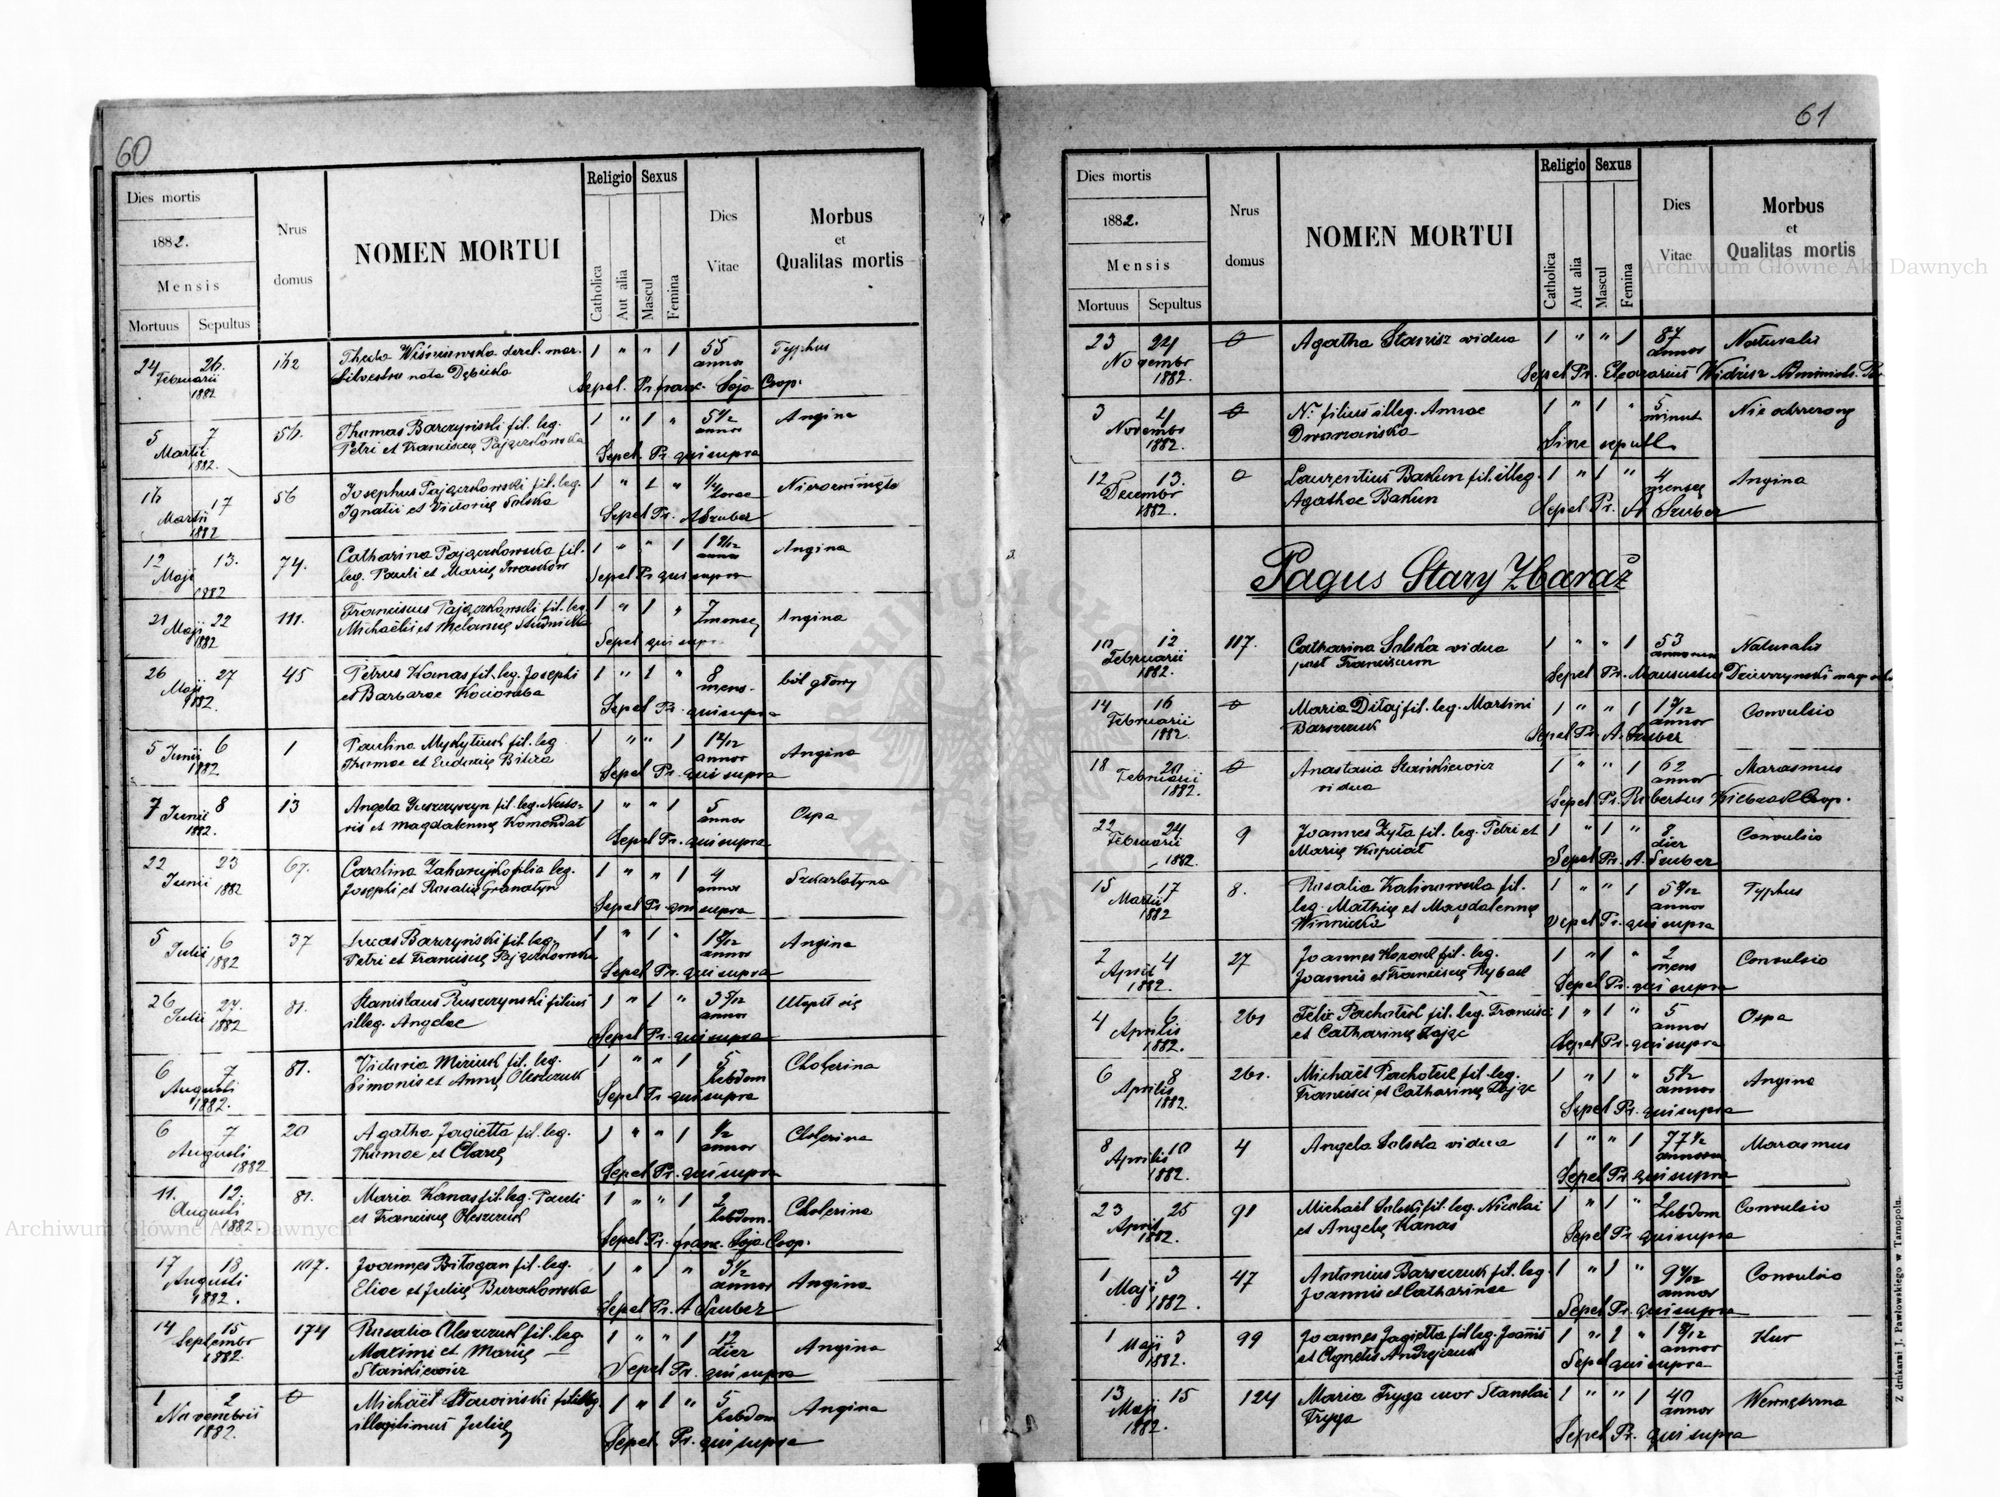 60
Dies mortis
1882.
Mensis
Mortuus Sepultus
Nrus
domus
NOMEN MORTUI
Religio Sexus
Catholica
Aut alia
Mascul
Femina
Dies
Vitae
Morbus
et
Qualitas mortis
24 26. 162 Thecla Wiśniewska derel. mar. 1 " " 1 55 Typhus
Februarii Silvestro nata Dębicka annor
1882 Sepel. Pr. franc. Soja Coop.
5 7 56. Thomas Barczyński fil. leg. 1 " 1 " 5 1/2 Angina
Martii Petri et Franciscę Pajączkowska annor
1882. Sepel Pr. qui supra
16 17 56 Josephus Pajączkowski fil. leg. 1 " 1 " 1/4
Martii Ignatii et Victorię Solska horae
1882 Sepel Pr. A Szuber
12 13. 74. Catharina Pajączkowska fil. 1 " " 1 Angina
Maji leg. Pauli et Marię Iwasków annor
1882 Sepel Pr qui supra
21 22 111. Franciscus Pajączkowski fil. leg. 1 " 1 " 7 Angina
Maji Michaelis et Melanię Studnicka
1882 Sepel qui supr
26 27 45 Petrus Kanas fil. leg. Josephi 1 " 1 " 8 ból głowy
Maji et Barbarae Kocioruba mens.
1882. Sepel Pr. qui supra
5 Junii 6 1 Paulina Mykytiuk fil. leg 1 " " 1 Angina
1882 Thomae et Eudocię annor
Sepel Pr. qui supra
7 Junii 8 13 Angela fil. leg. 1 " " 1 5 Ospa
1882. et Magdalennę Komendat annor
Sepel Pr. qui supra
22 23 67. Carolina filia leg. 1 " " 1 4 Szkarlatyna
Junii 1882 Josephi et Rosalię Granatyn annor
Sepel Pr. qui supra
5 6 37 Lucas Barczyński fil. leg. 1 " 1 " Angina
Julii 1882 Petri et Franciscę Pajączkowska annor
Sepel Pr. qui supra
26 27. 81. Stanislaus Ruszczynski filius 1 " 1 " Utopił się
Julii 1882 illeg. Angelae annor
Sepel Pr. qui supra
6 7 81. Victoria fil. leg. 1 " " 1 5 Cholerina
Augusti Simonis et Annę Oleszczuk hebdom
1882. Sepel Pr. qui supra
6 7 20 Agatha Jagiełła fil. leg. 1 " " 1 1/2 Cholerina
Augusti Thomae et Clarę annor
1882 Sepel Pr. qui supra
11. 12. 81. Maria Kanas fil. leg. Pauli 1 " " 1 2 Cholerina
Augusti et Franciscę Oleszczuk hebdom.
1882. Sepel Pr. franc. Soja Coop.
17 18 107. Joannes Biłogan fil. leg. 1 " 1 " 3 1/2 Angina
Augusti Eliae et Julię Burakowska annor
1882. Sepel Pr. A Szuber
14 15 174 Rosalia Oleszczuk fil. leg 1 " " 1 12 Angina
Septembr Maximi et Marię — dier
1882. Stankiewicz Sepel Pr. qui supra
1 2 0 Michaël 1 " 1 " 5 Angina
Novembris illegitimus Julię hebdom
1882. Sepel Pr. qui supra
61
Dies mortis
1882.
Mensis
Mortuus Sepultus
Nrus
domus
NOMEN MORTUI
Religio Sexus
Catholica
Aut alia
Mascul
Femina
Dies
Vitae
Morbus
et
Qualitas mortis
23 24 0 Agatha Stanisz vidua 1 " " 1 87 Naturalis
Novembr annor
1882. Sepel Pr. Eleazarius
3 4 0 N. filius illeg. Annae 1 " 1 " 5
Novembr Dworzańska minut
1882. Sine sepult
12 13. 0 Laurentius Bakun fil. illeg. 1 " 1 " 4 Angina
Decembr Agathae Bakun menses
1882. Sepel Pr. A Szuber
Pagus Stary Zbaraż
10 12 117. Catharina Solska vidua 1 " " 1 53 Naturalis
Februarii post Franciscum annorum
1882. Sepel Pr. Mansuetus
14 16 0 Maria Diłaj fil. leg. Martini 1 " " 1 Convulsio
Februarii Barszczuk annor
1882. Sepel Pr. A. Szuber
18 20 0 Anastasia Stańkiewicz 1 " " 1 62 Marasmus
Februarii vidua annor
1882. Sepel Pr. Robertus Coop.
22 24 9 Joannes Zyła fil. leg. Petri et 1 " 1 " 8 Convulsio
Februarii Marię dier
1882. Sepel Pr. A. Szuber
15 17 8. Rosalia Kalinowska fil. 1 " " 1 Typhus
Martii leg. Mathię et Magdalennę annor
1882 Winnicka Sepel Pr. qui supra
2 4 27 Joannes fil. leg. 1 " 1 " 2 Convulsio
Aprili Joannis et Franciscę Rybak mens
1882. Sepel Pr. qui supra
4 6 261 Felix Pachołek fil. leg. Francisci 1 " 1 " 5 Ospa
Aprilis et Catharinę Zając annor
1882. Sepel Pr. qui supra
6 8 261. Michaël Pachołek fil. leg. 1 " 1 " 5 1/2 Angina
Aprilis Francisci et Catharinę Zając annor
1882. Sepel Pr. qui supra
8 10 4 Angela Solska vidua 1 " " 1 77 1/2 Marasmus
Aprilis annorum
1882. Sepel Pr. qui supra
23 25 91 Michaël Solski fil. leg. Nicolai 1 " 1 " 2 Convulsio
April et Angelę Kanas hebdom
1882. Sepel Pr. qui supra
1 3 47 Antonius Barszczuk fil. leg. 1 " 1 " Convulsio
Maji Joannis et Catharinae annor
1882. Sepel Pr. qui supra
1 3 99 Joannes Jagiełła fil leg. Joannis 1 " 1 " Kur
Maji et Agnetis Andrejczuk annor
1882. Sepel qui supra
13 15 124 Maria Fryga uxor Stanislai 1 " " 1 40 Wewnętrzna
Maji Fryga annor
1882. Sepel Pr. qui supra
Z drukarni J. Pawłowskiego w Tarnopolu.
Archiwum Główne Akt Dawnych
Archiwum Główne Akt Dawnych
ARCHIWUM GŁÓWNE AKT DAWNYCH